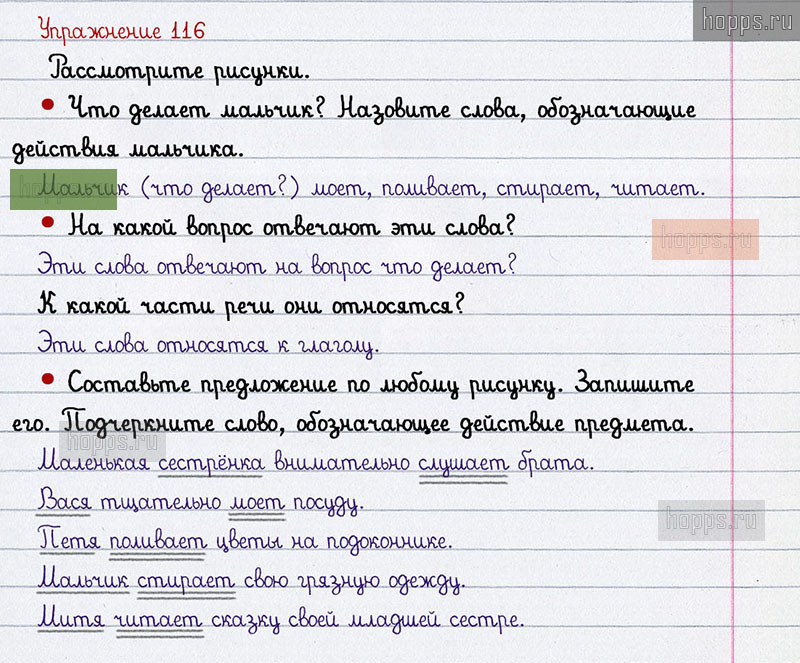 hopps.ru
Упражнение 116
Рассмотрите рисунки.
• Что делает мальчик? Назовите слова, обозначающие
действия мальчика.
Мальчик (что делает?) моет, поливает, стирает, читает.
• На какой вопрос отвечают эти слова?
hopps.ru
Эти слова отвечают на вопрос что делает?
К какой части речи они относятся?
Эти слова относятся к глаголу.
• Составьте предложение по любому рисунку. Запишите
его. Подчеркните слово, обозначающее действие предмета.
hopps.ru
Маленькая сестрёнка внимательно слушает брата.
Вася тщательно моет посуду.
hopps.ru
Петя поливает цветы на подоконнике.
Мальчик стирает свою грязную одежду.
Митя читает сказку своей младшей сестре.